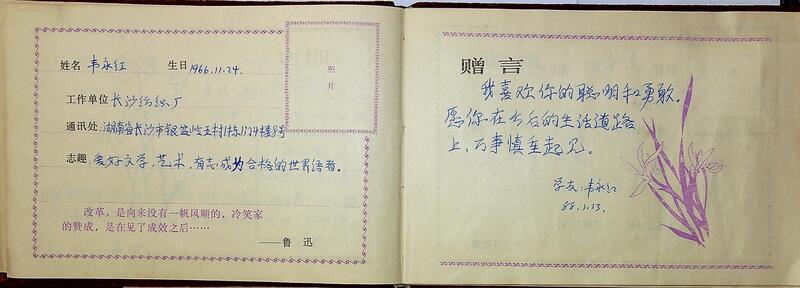 姓名 韦永红 生日 1966.11.24.
照
片
工作单位 长沙纺织厂
通讯处: 湖南省长沙市银盆岭五村1栋1124楼8号
志趣: 爱好文学,艺术,有志成为合格的世界语者。
改革,是向来没有一帆风顺的,冷笑家
的赞成,是在见了成效之后……
——鲁 迅
赠 言
我喜欢你的聪明和勇敢。
愿你在今后的生活道路
上,万事慎重起见。
学友:韦永红
88.1.13.